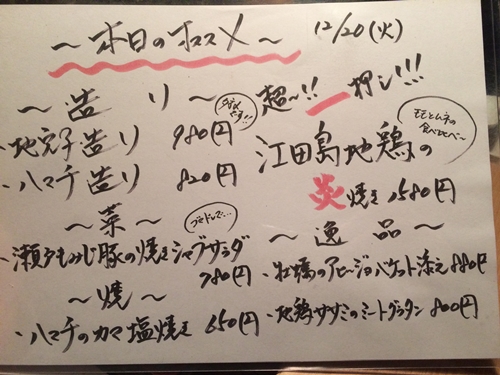 〜本日のオススメ〜
12/20(火)
〜造り〜
・地穴子造り 980円
・ハマチ造り 820円
〜菜〜
・瀬戸もみじ豚の焼きシャブサラダ
780円
〜焼〜
・ハマチのカマ塩焼き 650円
超〜!!一押し!!!
モモとムネの
食べ比べ〜
江田島地鶏の
炎焼き 1580円
〜逸品〜
・牡蠣のアヒージョバケット添え 880円
・地鶏ササミのミートグラタン 800円